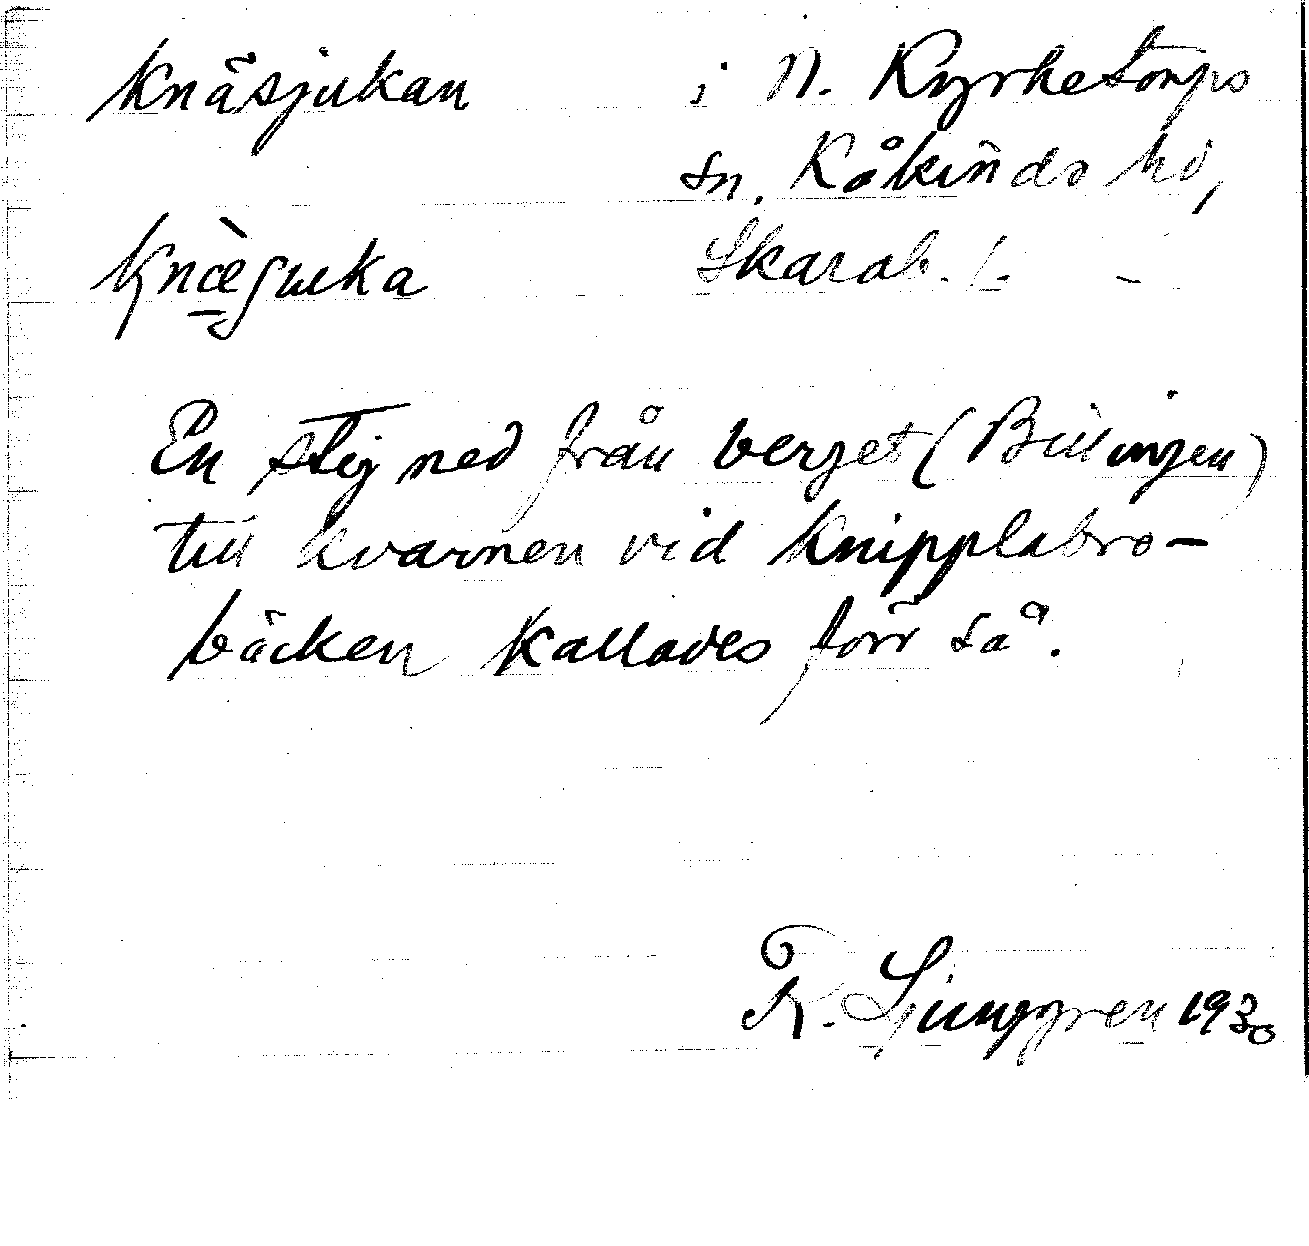 Knäsjukan i N. Kyrketorps
sn. Kåkinds hd,
Skarab. l.
En stig ned från berget (Billingen)
till kvarnen vid Knipplabro-
bäcken kallades förr så.
R. Ljunggren 1930